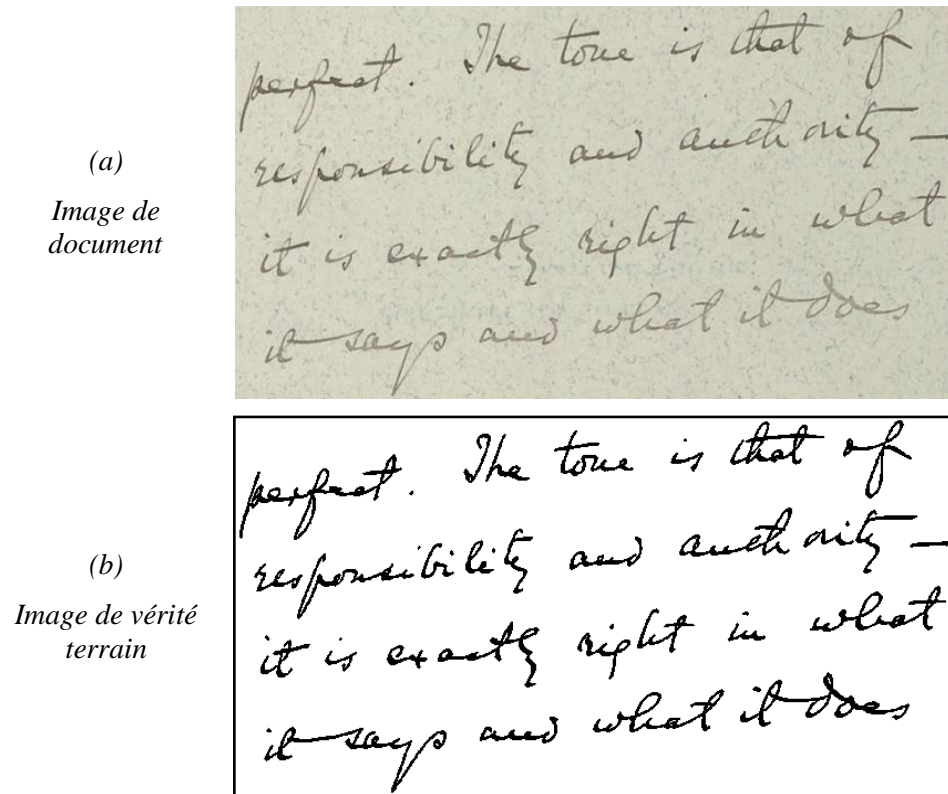 (a)
Image de
document
perfect. The tone is that of
responsibility and authority —
it is exactly right in what
it says and what it does
(b)
Image de vérité
terrain
perfect. The tone is that of
responsibility and authority —
it is exactly right in what
it says and what it does